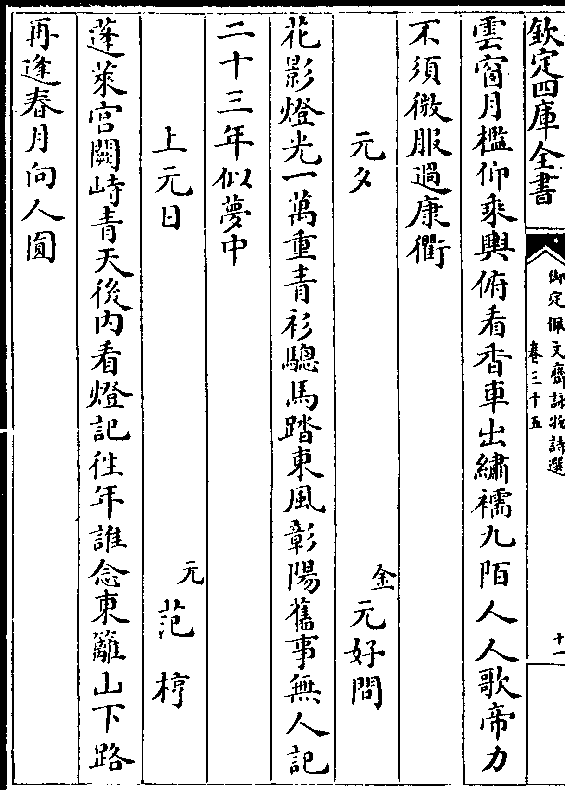 欽定四庫全書
御定佩文齋詠物詩選
卷三十五
十一
雲窗月檻仰乘輿俯看香車出繡襦九陌人人歌帝力
不須微服過康衢
元夕
金
元好問
花影燈光一萬重青衫驄馬踏東風彰陽舊事無人記
二十三年似夢中
上元日
元
范梈
蓬萊宫闕峙青天後内看燈記徃年誰念東籬山下路
再逢春月向人圓